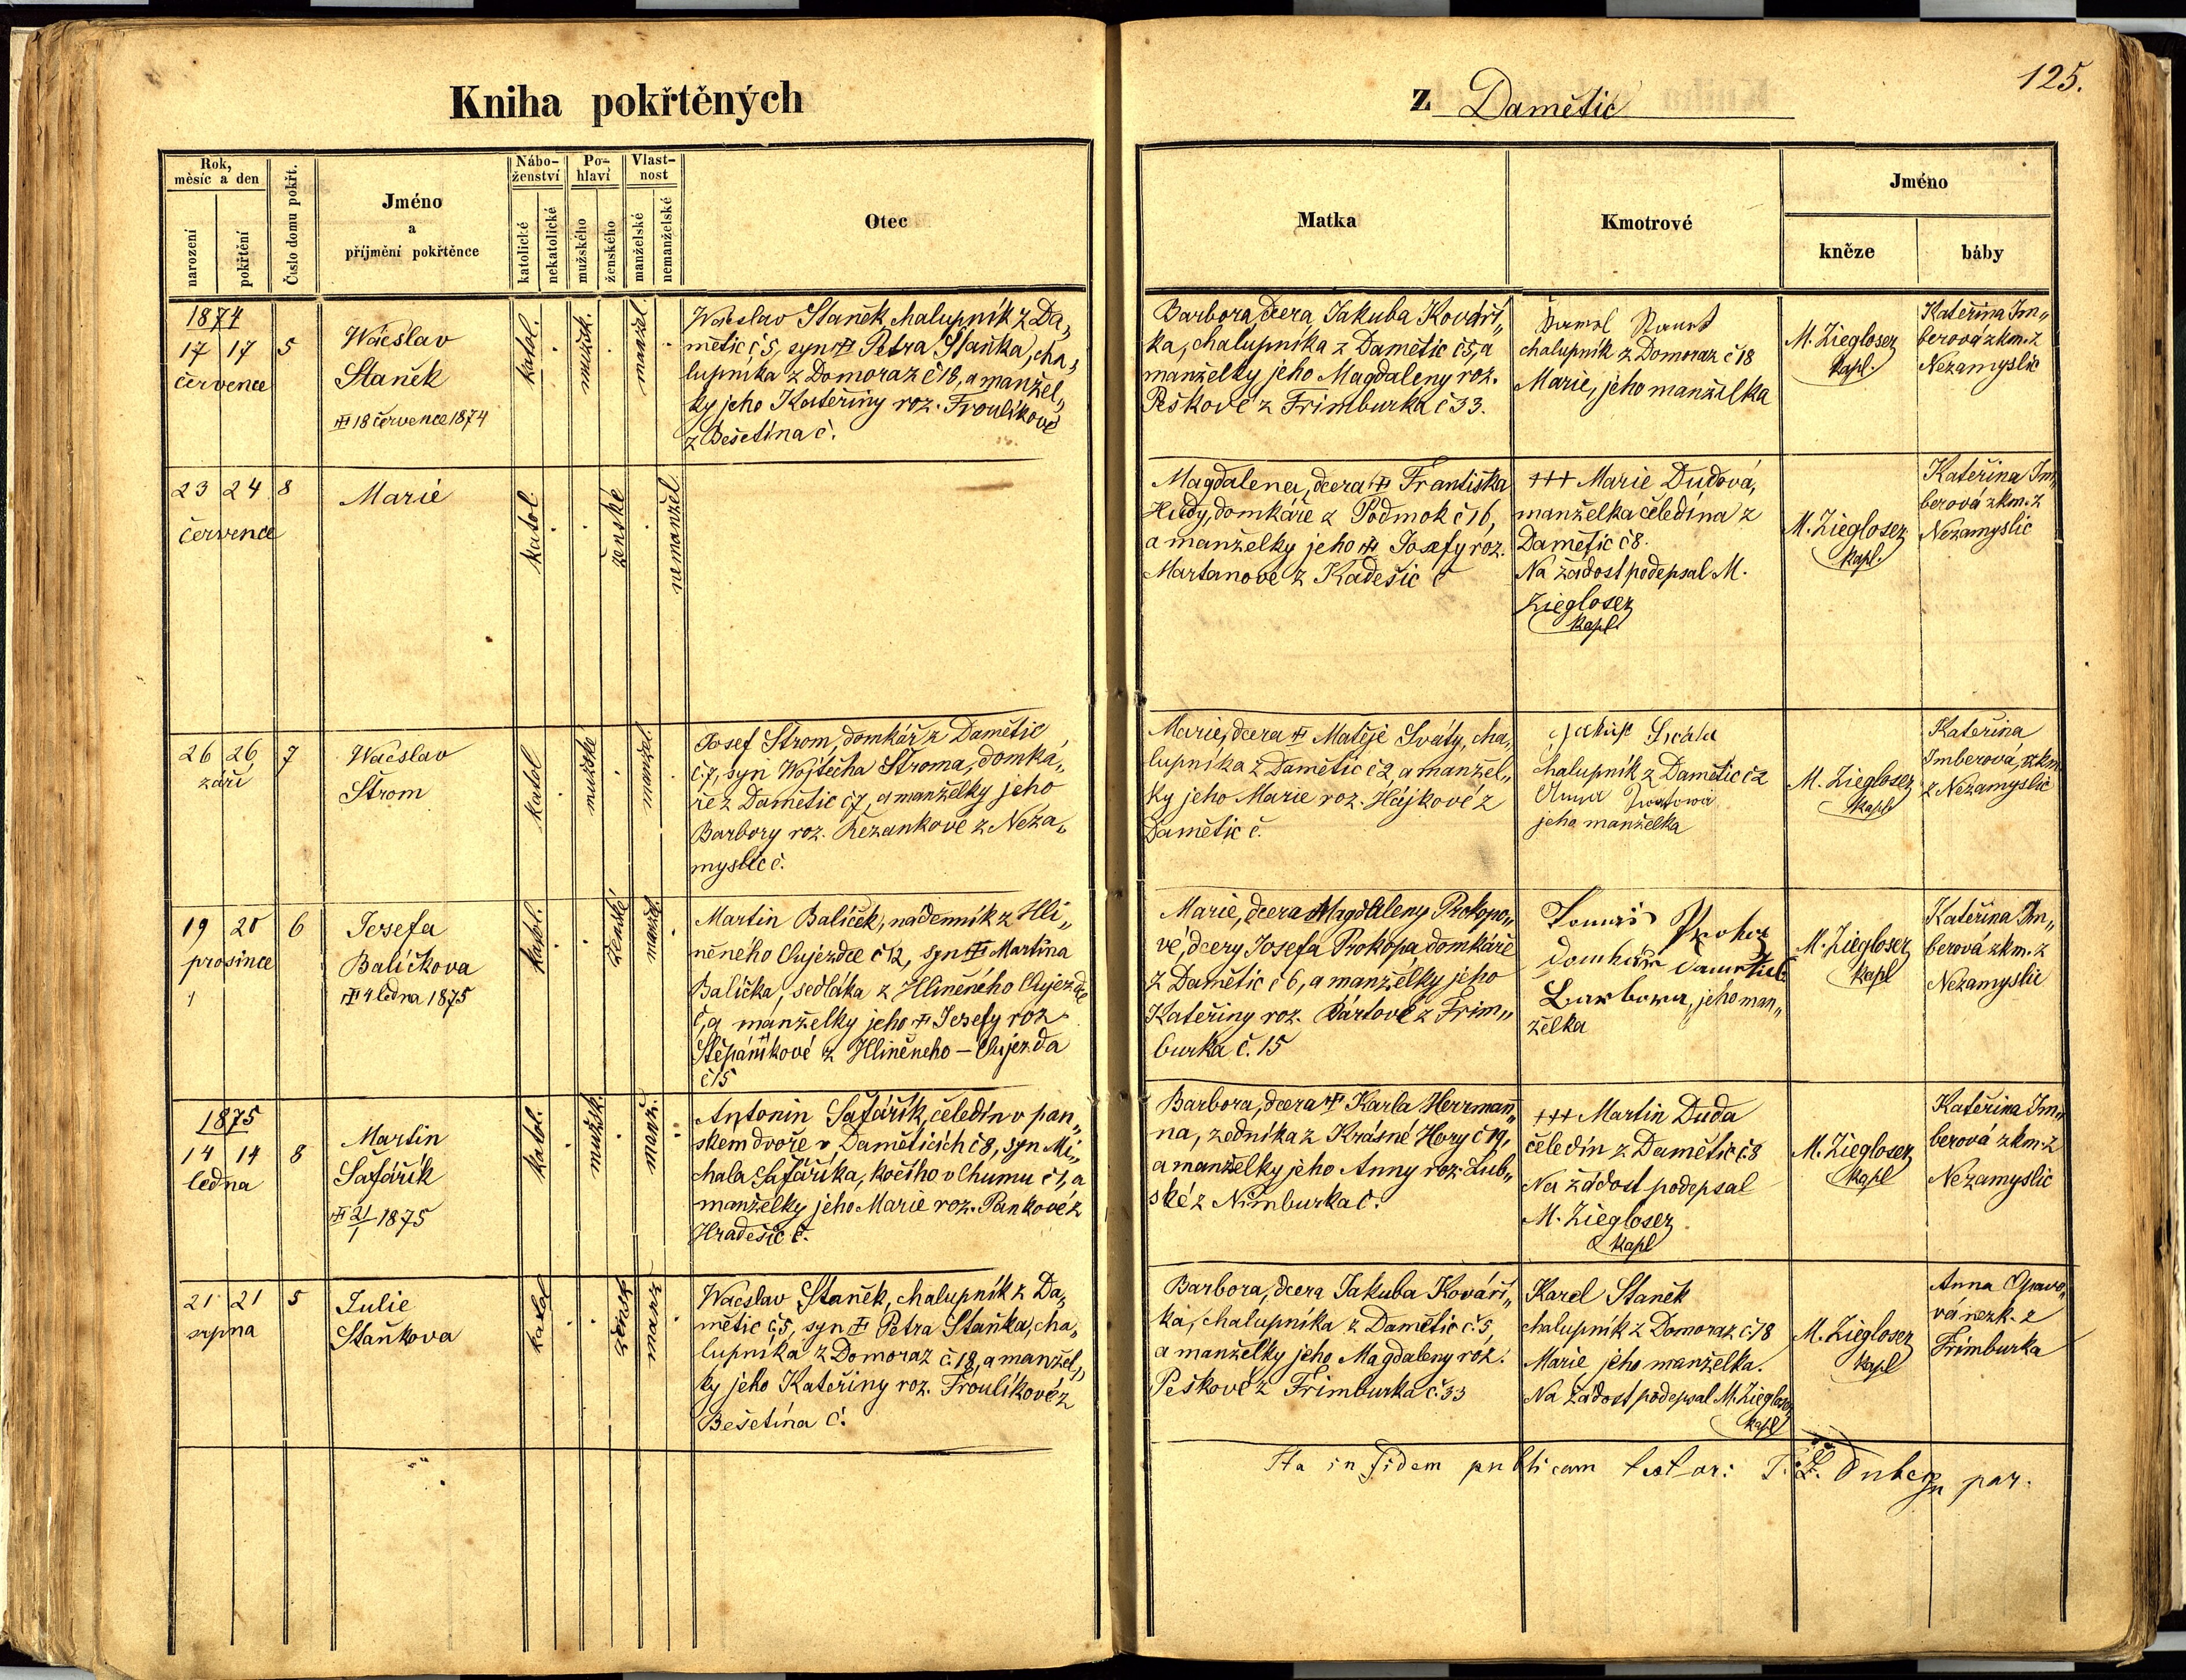 Kniha pokřtěných
z Damětic
125.
Rok,
měsíc a den
narození
pokřtění
Číslo domu pokřt.
Jméno
a
příjmění pokřtěnce
Nábo-
ženství
katolické
nekatolické
Po-
hlaví
mužského
ženského
Vlast-
nost
manželské
nemanželské
Otec
Matka
Kmotrové
Jméno
kněze
báby
1874
17 17 5
července
Wácslav
Staněk
18 července 1874
katol.
mužsk.
manžel.
Wácslav Staněk, chalupník z Da„
mětic č 5, syn Petra Staňka, cha„
lupníka z Domoraz č 18, a manžel„
ky jeho Kateřiny roz. Froulíkové
z Bešetína č.
Barbora, dcera Jakuba Kováří„
ka, chalupníka z Damětic č 5, a
manželky jeho Magdaleny roz.
Peškové z Frimburka č 33.
chalupník z Domoraz č 18
Marie, jeho manželka
M. Zieglosez
kapl.
Kateřina Im„
berová zkm. z
Nezamyslic
23 24 8
července
Marie
katol
ženské
nemanžel
Magdalena, dcera Františka
Hudy, domkáře z Podmok č 16,
a manželky jeho Josefy roz.
Martanové z Kadešic č
+++ Marie Dudová,
manželka čeledína z
Damětic č 8.
Na žádost podepsal M.
Zieglosez
kapl.
M. Zieglosez
kapl.
Kateřina Im„
berová zkm. z
Nezamyslic
26 26 7
září
Wácslav
Štrom
katol
mužské
manžel.
Josef Štrom, domkář z Damětic
č. 7, syn Wojtěcha Štroma, domká„
ře z Damětic č 7, a manželky jeho
Barbory roz. Řezankové z Neza„
myslic č.
Marie, dcera Matěje Sváty, cha„
lupníka z Damětic č 2, a manžel„
ky jeho Marie roz. Hájkové z
Damětic č.
chalupník z Damětic č 2
Anna
jeho manželka
M. Zieglosez
kapl
Kateřina
Imberová, zkm
z Nezamyslic
19 20 6
prosince
Josefa
Balíčkova
4 ledna 1875
katol.
ženské
manžel.
Martin Balíček, nádenník z Hli„
něného Aujezdce č 12, syn Martina
Balíčka, sedláka z Hliněného Aujezde
č, a manželky jeho Josefy roz
Štěpánkové z Hliněneho – Aujezda
č 15
Marie, dcera Magdaleny Prokopo„
vé, dcery Josefa Prokopa, domkáře
z Damětic č 6, a manželky jeho
Kateřiny roz. Bártové z Frim„
burka č. 15
Barbora, jeho man„
želka
M. Zieglosez
kapl
Kateřina Im„
berová zkm. z
Nezamyslic
1875
14 14 8
ledna
Martin
Šafářík
21/1 1875
katol.
mužsk.
manž.
Antonín Šafářík, čeledín v pan„
ském dvoře v Damětících č 8, syn Mi„
chala Šafáříka, kočího v Chumu č 1, a
manželky jeho Marie roz. Pankové z
Hradešic č.
Barbora, dcera Karla Herrmann„
na, zedníka z Krásné Hory č 19,
a manželky jeho Anny roz. Lub„
ské z Nimburka č.
+++ Martin Duda
čeledín z Damětic č 8
Na žádost podepsal
M. Zieglosez
kapl
M. Zieglosez
kapl
Kateřina Im„
berová zkm. z
Nezamyslic
21 21 5
srpna
Julie
Staňkova
katol
žensk
manž
Wácslav Staněk, chalupník z Da„
mětic č 5, syn Petra Staňka, cha„
lupníka z Domoraz č. 18, a manžel„
ky jeho Kateřiny roz. Froulíkové z
Bešetína č.
Barbora, dcera Jakuba Kováří„
ka, chalupníka z Damětic č. 5,
a manželky jeho Magdaleny roz.
Peškové z Frimburka č. 33
Karel Staněk
chalupník z Domoraz č. 18
Marie jeho manželka.
Na žádost podepsal M. Zieglosez
kapl
M. Zieglosez
kapl
Anna Opavo„
vá nezk. z
Frimburka
Ita in fidem publicam testor: par.